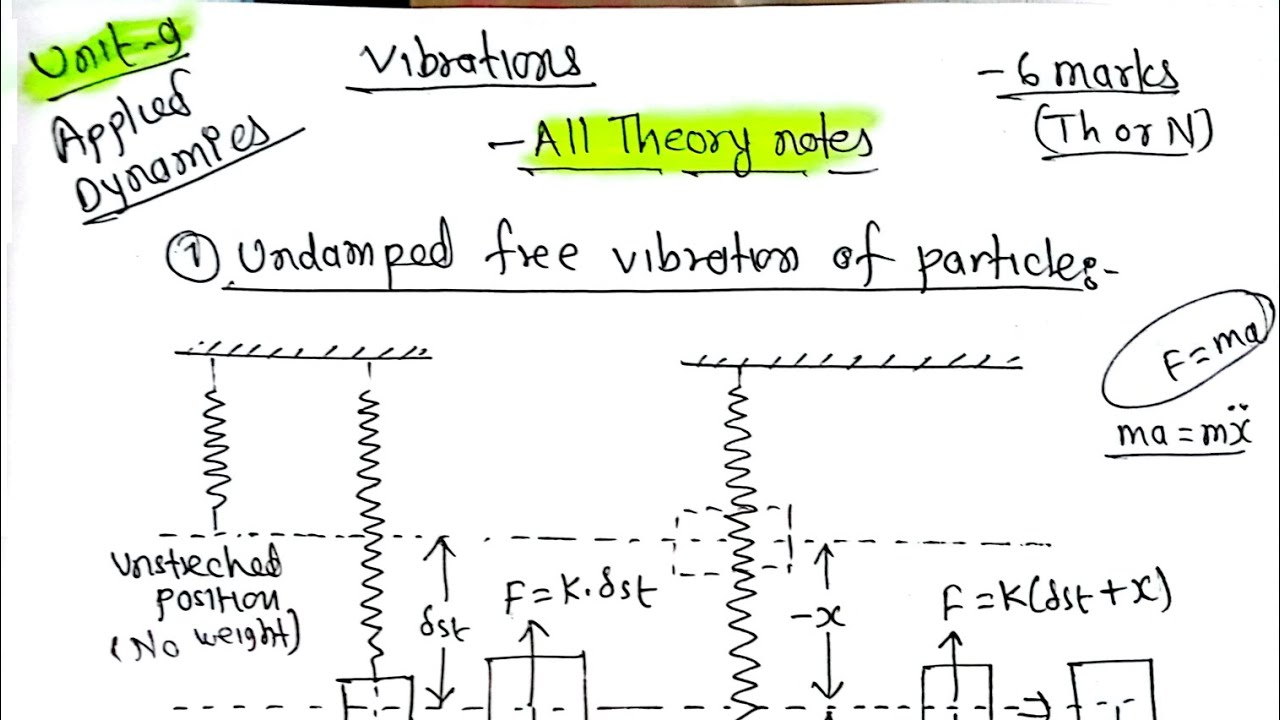 Unit-9
Applied
Dynamics
Vibrations
- All Theory notes
- 6 marks
(Th or N)
① Undamped free vibration of particles-
F=ma
ma = mẍ
Unstreched
position
(No weight)
δst
F=K.δst
-x
F=K(δst+x)